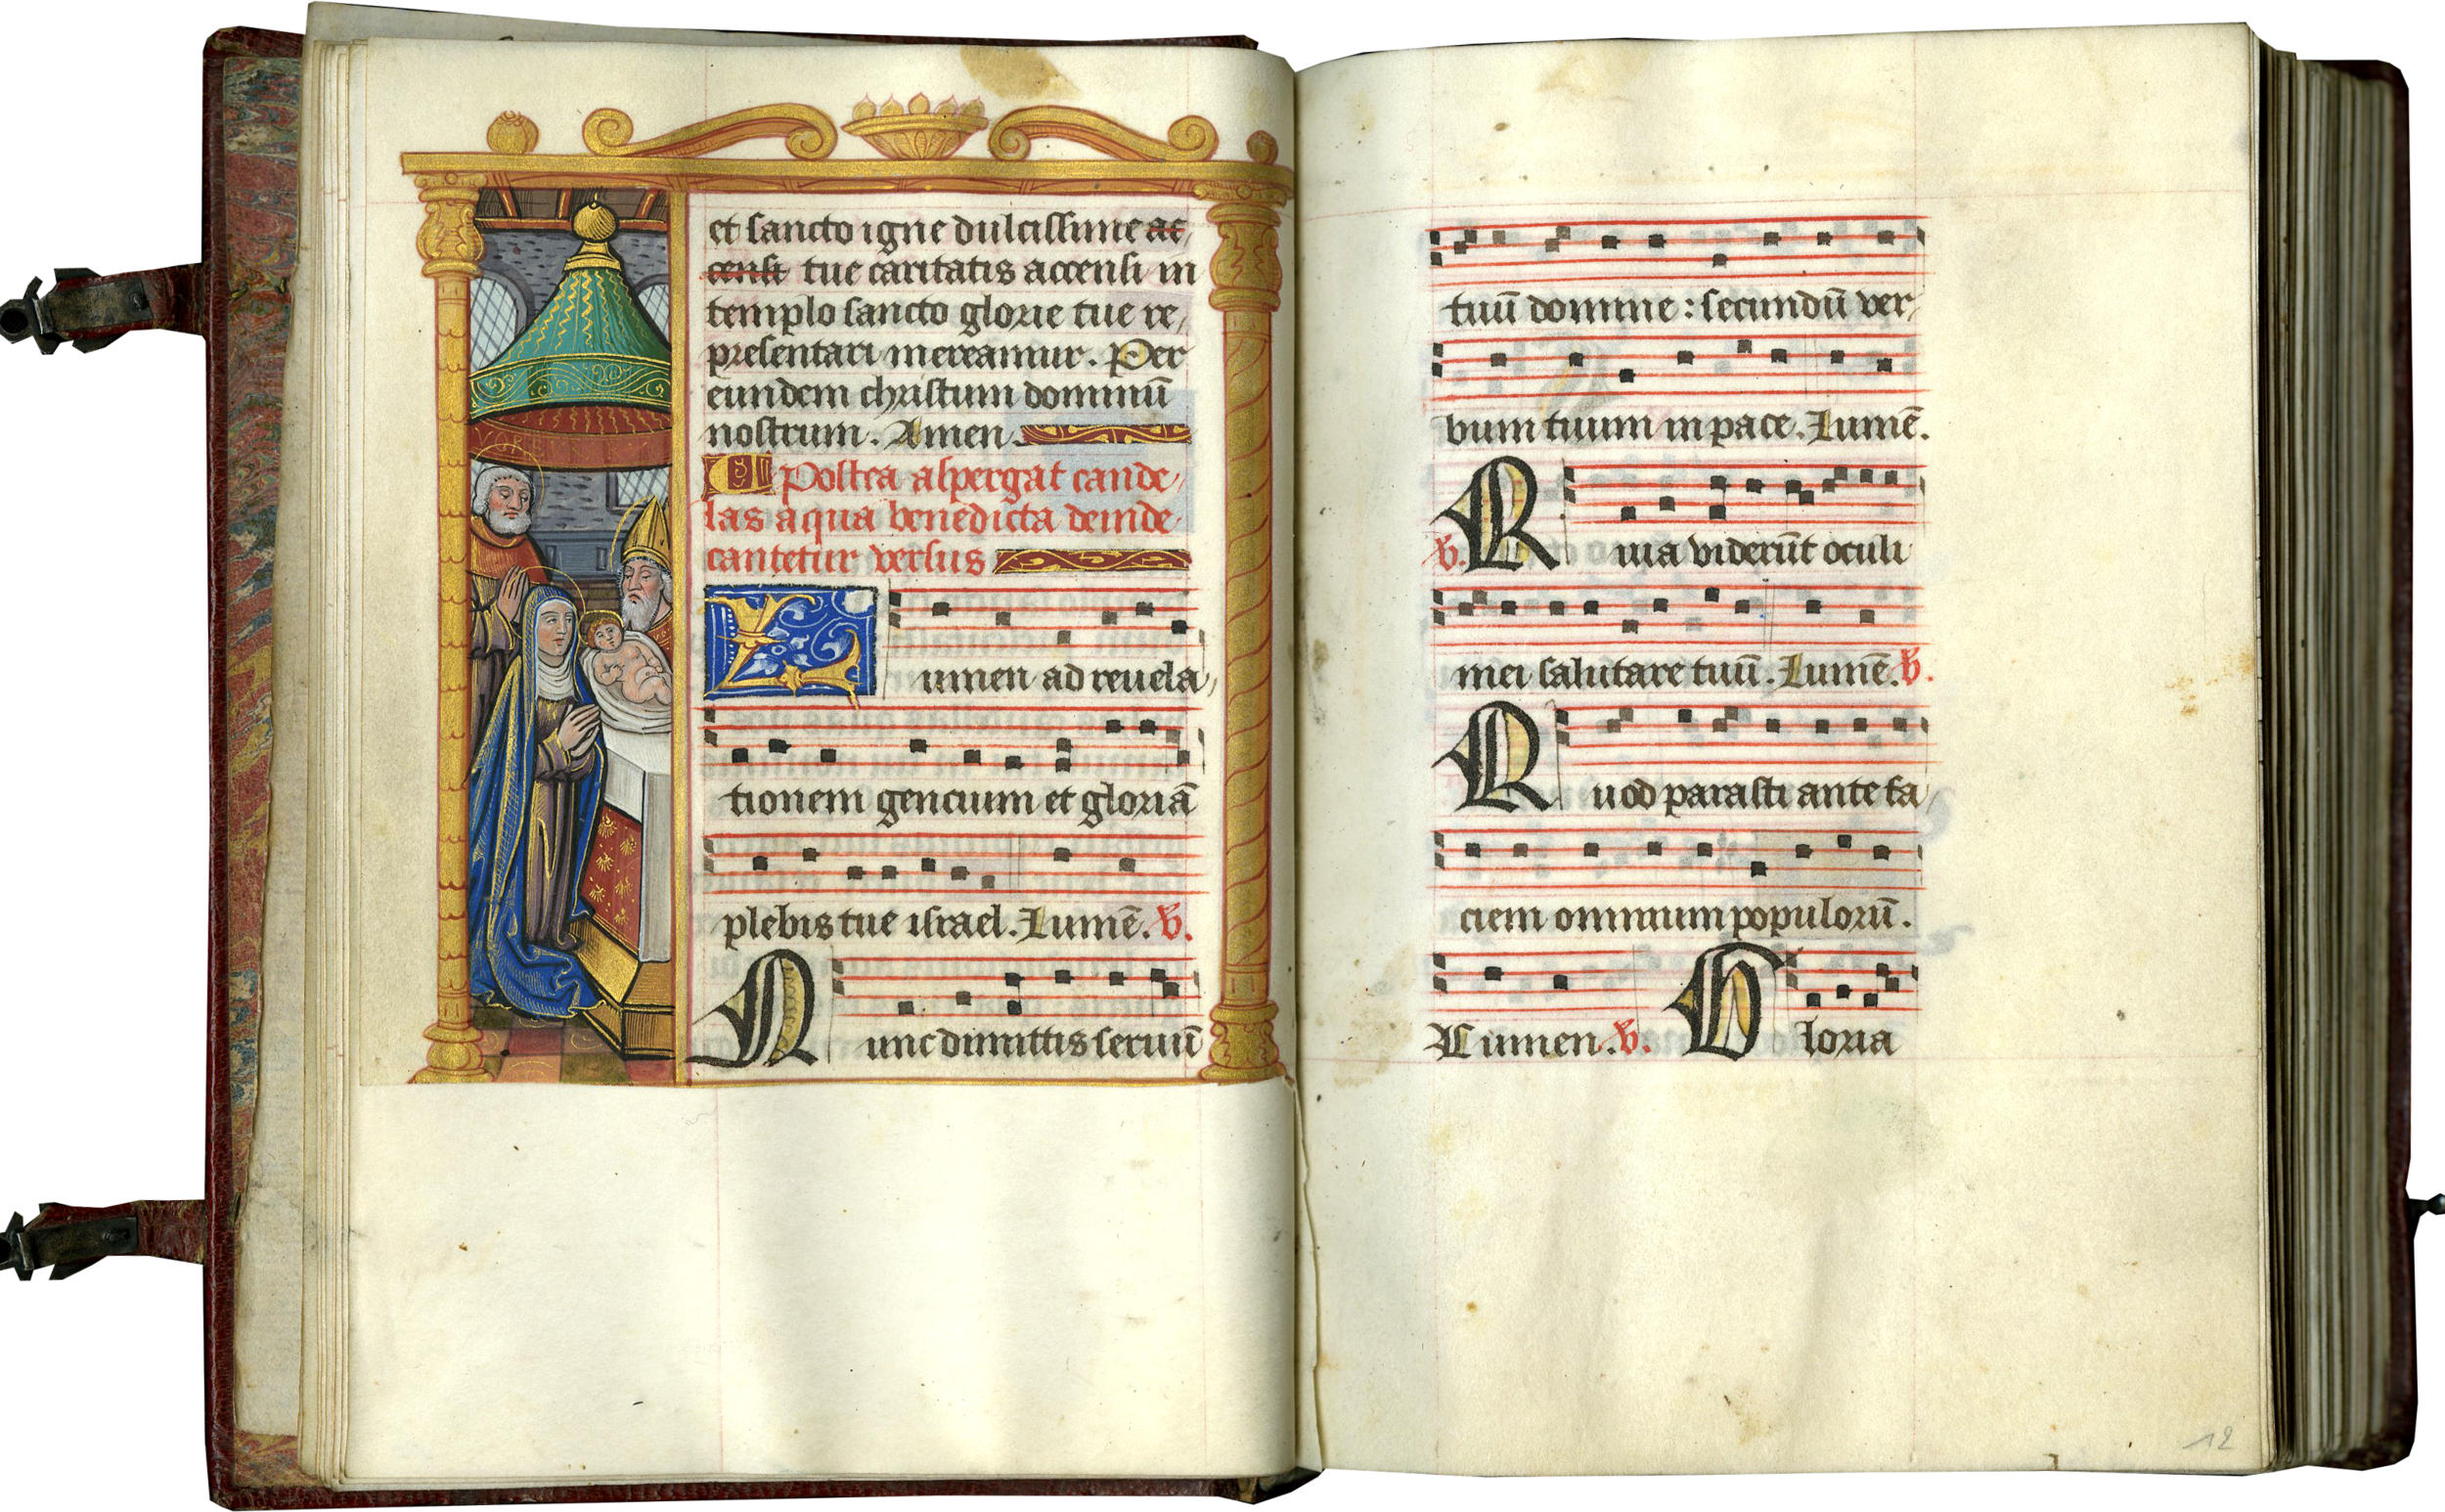 et sancto igne dulcissime ac,
censi tue caritatis accensi in
templo sancto glorie tue re,
presentari mereamur. Per
eundem christum dominū
nostrum. Amen.
Postea aspergat cande,
las aqua benedicta deinde
cantetur versus
Lumen ad reuela,
tionem gencium et gloriā
plebis tue israel. Lumē. v.
Nunc dimittis seruū
tuū domine : secundū ver,
bum tuum in pace. Lumē.
v. Quia viderūt oculi
mei salutare tuū. Lumē. v.
Quod parasti ante fa,
ciem omnium populorū.
Lumen. v. Gloria
12